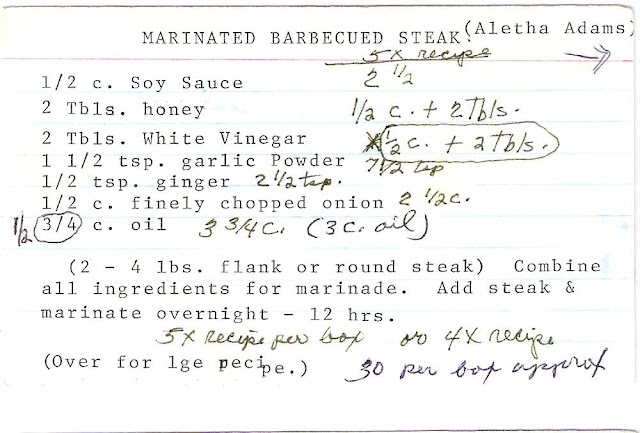 MARINATED BARBECUED STEAK (Aletha Adams)
5x recipe
1/2 c. Soy Sauce 2 1/2
2 Tbls. honey 1/2 c. + 2 Tbls.
2 Tbls. White Vinegar 1/2 c. + 2 Tbls.
1 1/2 tsp. garlic Powder 7 1/2 tsp
1/2 tsp. ginger 2 1/2 tsp.
1/2 c. finely chopped onion 2 1/2 c.
1/2 3/4 c. oil 3 3/4 c. (3 c. oil)
(2 - 4 lbs. flank or round steak) Combine
all ingredients for marinade. Add steak &
marinate overnight - 12 hrs.
5x recipe per box or 4x recipe
(Over for lge recipe.) 30 per box approx